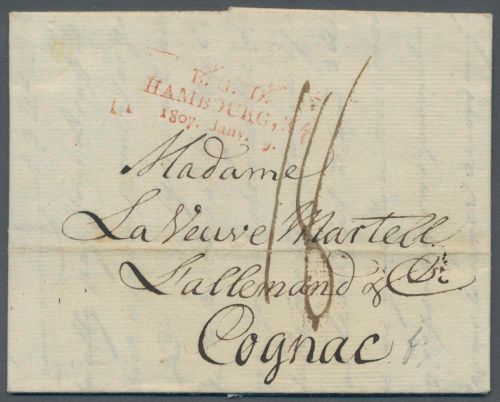 B. G. D.
HAMBOURG, N.4
1807. Janv. 9.
16
Madame
La Veuve Martell
Lallemand & Cie
Cognac